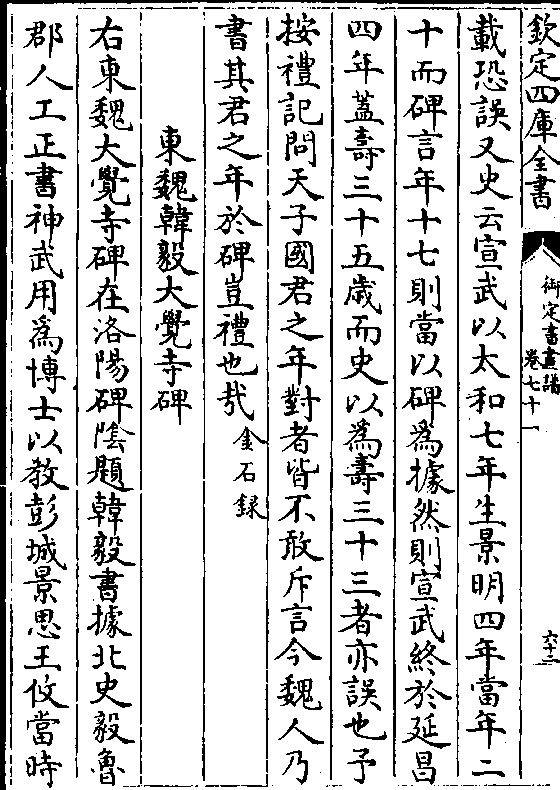 欽定四庫全書
御定書畫譜
卷七十一
六十二
載恐誤又史云宣武以太和七年生景明四年當年二
十而碑言年十七則當以碑爲據然則宣武終於延昌
四年蓋壽三十五歲而史以爲壽三十三者亦誤也予
按禮記問天子國君之年對者皆不敢斥言今魏人乃
書其君之年於碑豈禮也㦲金石録
東魏韓毅大覺寺碑
右東魏大覺寺碑在洛陽碑陰題韓毅書據北史毅魯
郡人工正書神武用爲博士以教彭城景思王攸當時